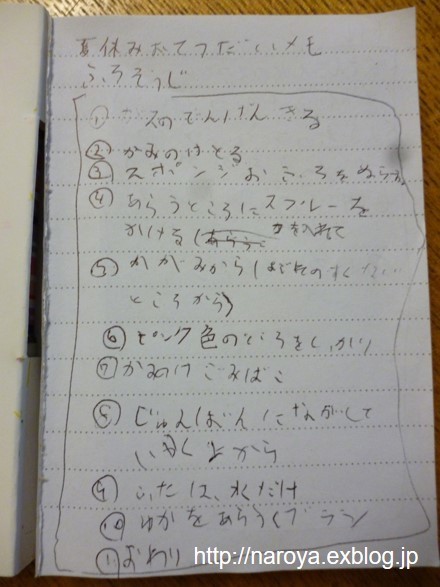 夏休みおてつだいメモ
ふろそうじ
① ガスのでんげんきる
② かみのけとる
③ スポンジおふろをぬらす
④ あらうところにスプレーを
かける(力を入れて
⑤ かがみから(
ところから)
⑥ ピンク色のところをしっかり
⑦ かみのけごみばこ
⑧ じゅんばんにながして
いくよから
⑨ ふたは、水だけ
⑩ ゆかをあらうくブラシ
⑪ おわり
http://naroya.exblog.jp